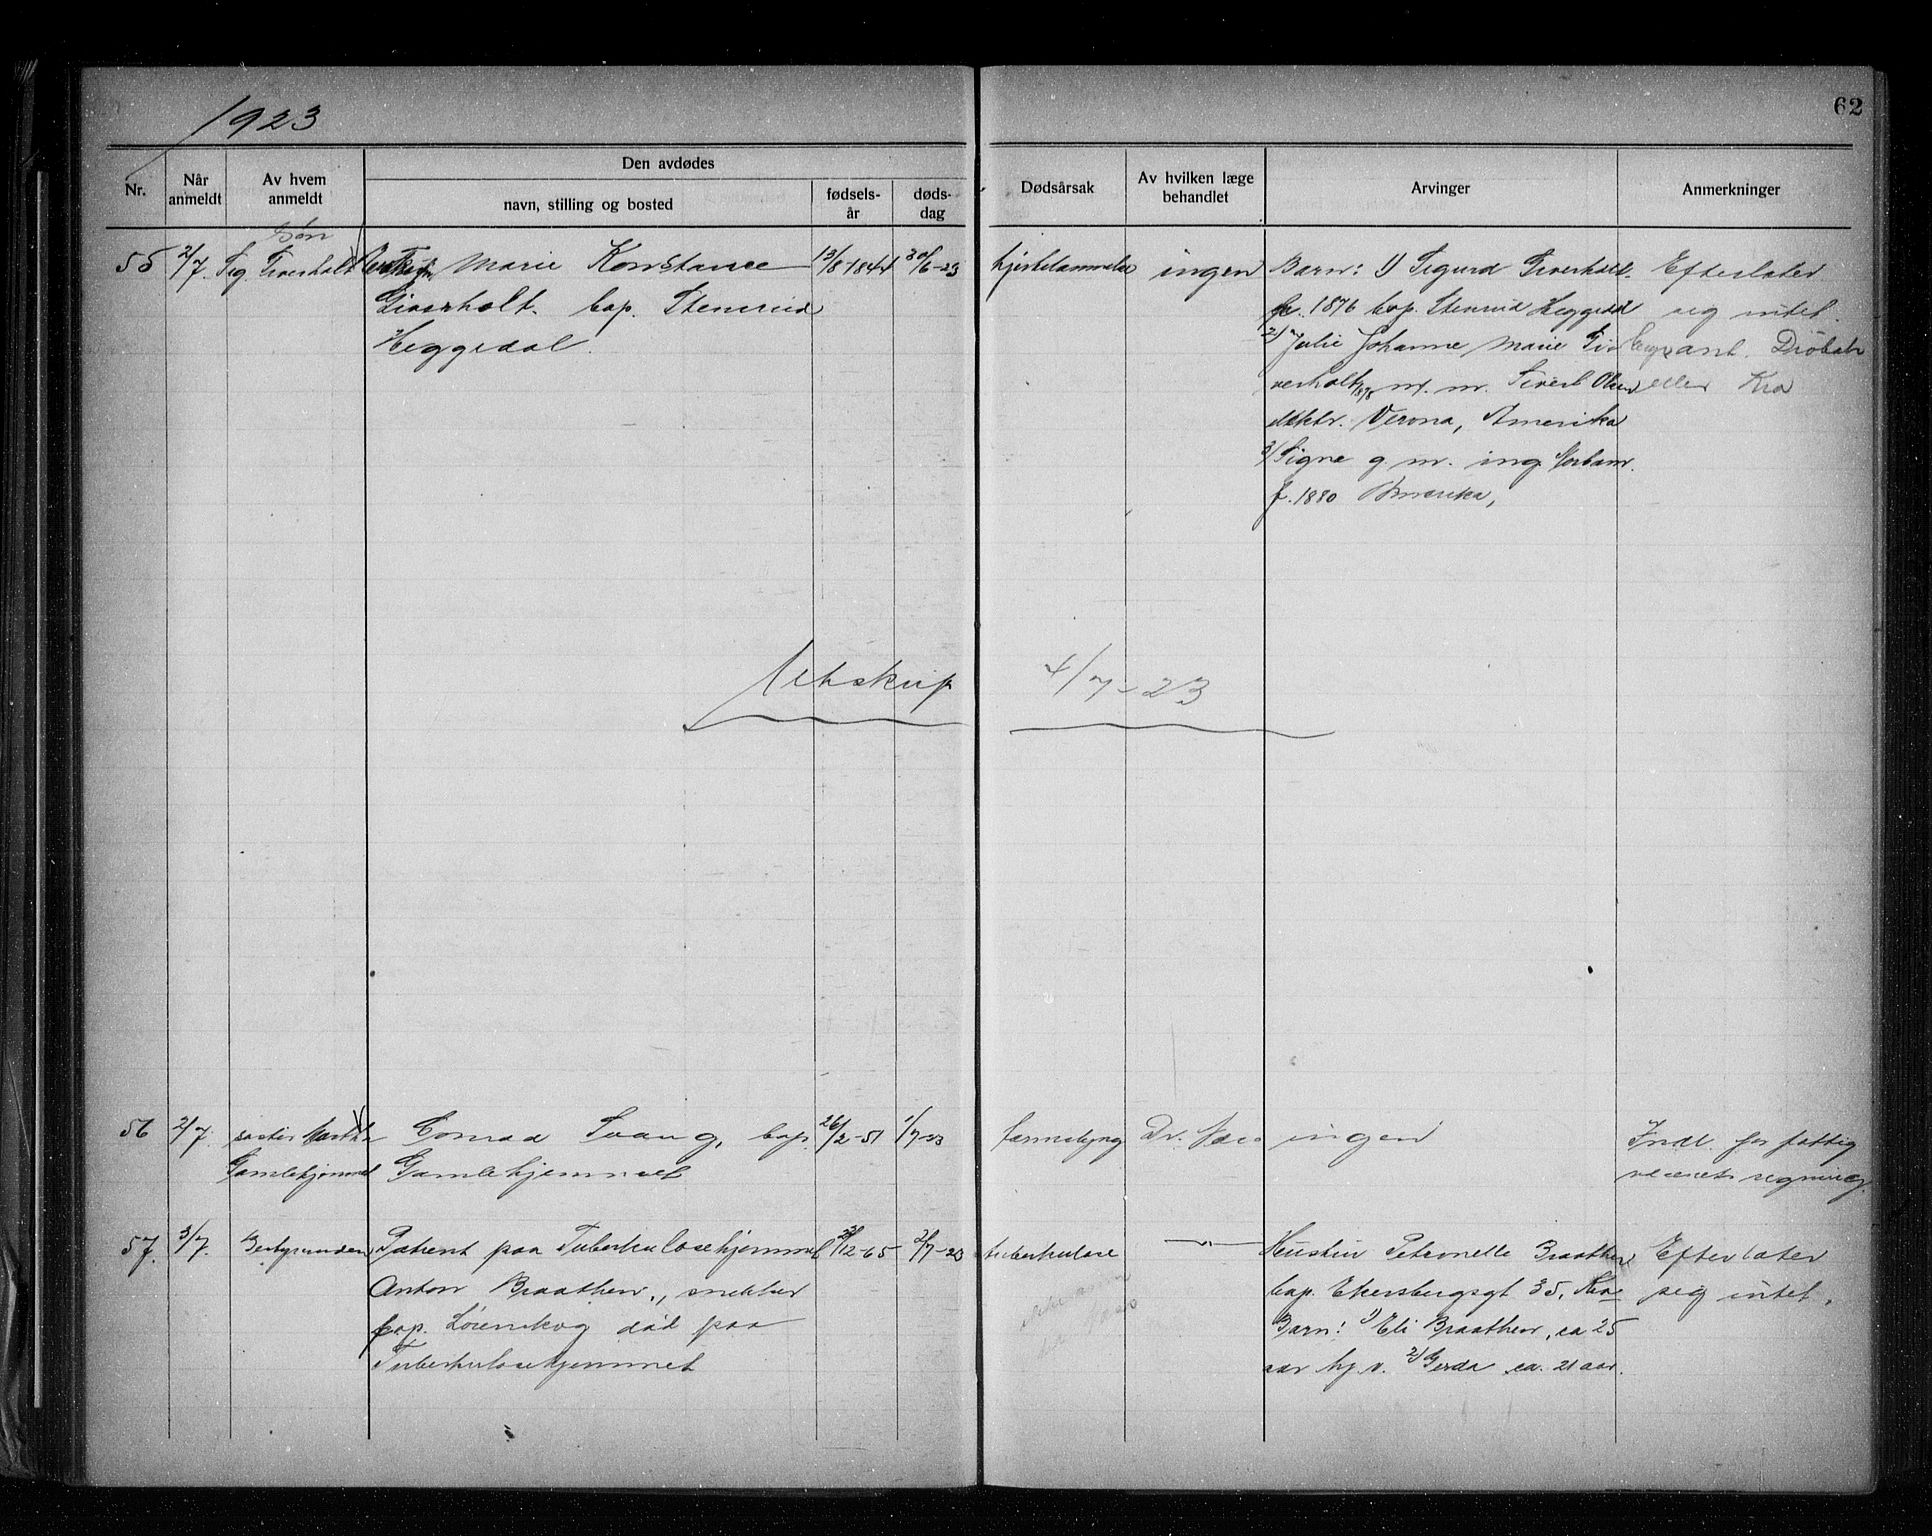 1923
62
Nr.
Når anmeldt
Av hvem anmeldt
Den avdødes
navn, stilling og bosted
fødsels-år
døds-dag
Dødsårsak
Av hvilken læge behandlet
Arvinger
Anmerkninger
55 2/7. Søn Sig. Giverholt
Marie Konstance 13/8 1844 30/6-23
Giverholt. bop. Stensrud
Heggedal.
hjertelammelse ingen
Barn: 1) Sigurd Giverholt.
f. 1876 bop. Stensrud Heggedal
2) Julie Johanne Marie Gi
verholt 1878 m. m. Sivert Olsen
elektr. Verona, Amerika
3) Signe g m. ing.
f. 1880 Amerika,
Efterlater
sig intet.
ant. Drøbak
eller Kra
Utskrift 4/7-23
56 2/7. søster Martha
Gamlehjemmet
Conrad Svang, bop. 26/2-51 1/7-23
Gamlehjemmet
tarmslyng Dr. ingen
Indl. for fattig
væsnets regning.
57. 3/7. Bestyrerinden
Patient paa Tuberkulosehjemmet 12-65 2/7-23
Anton Braathen, snekker
bop. Lørenskog død paa
Tuberkulosehjemmet
tuberkulose —"—
Hustru Petronelle Braathen
bop. Ekersbergsgt 35, Kra
Barn: 1) Eli Braathen, ca 25
aar hj. v. 2) Gerda ca. 21 aar.
Efterlater
sig intet.